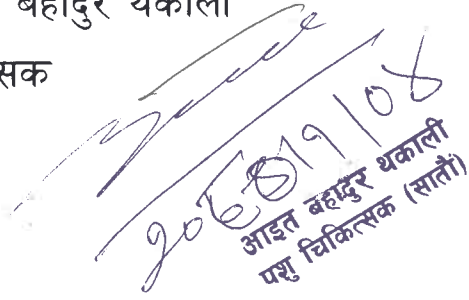 बहादुर थकाली
सक
आइत बहादुर थकाली
पशु चिकित्सक (सातौं)